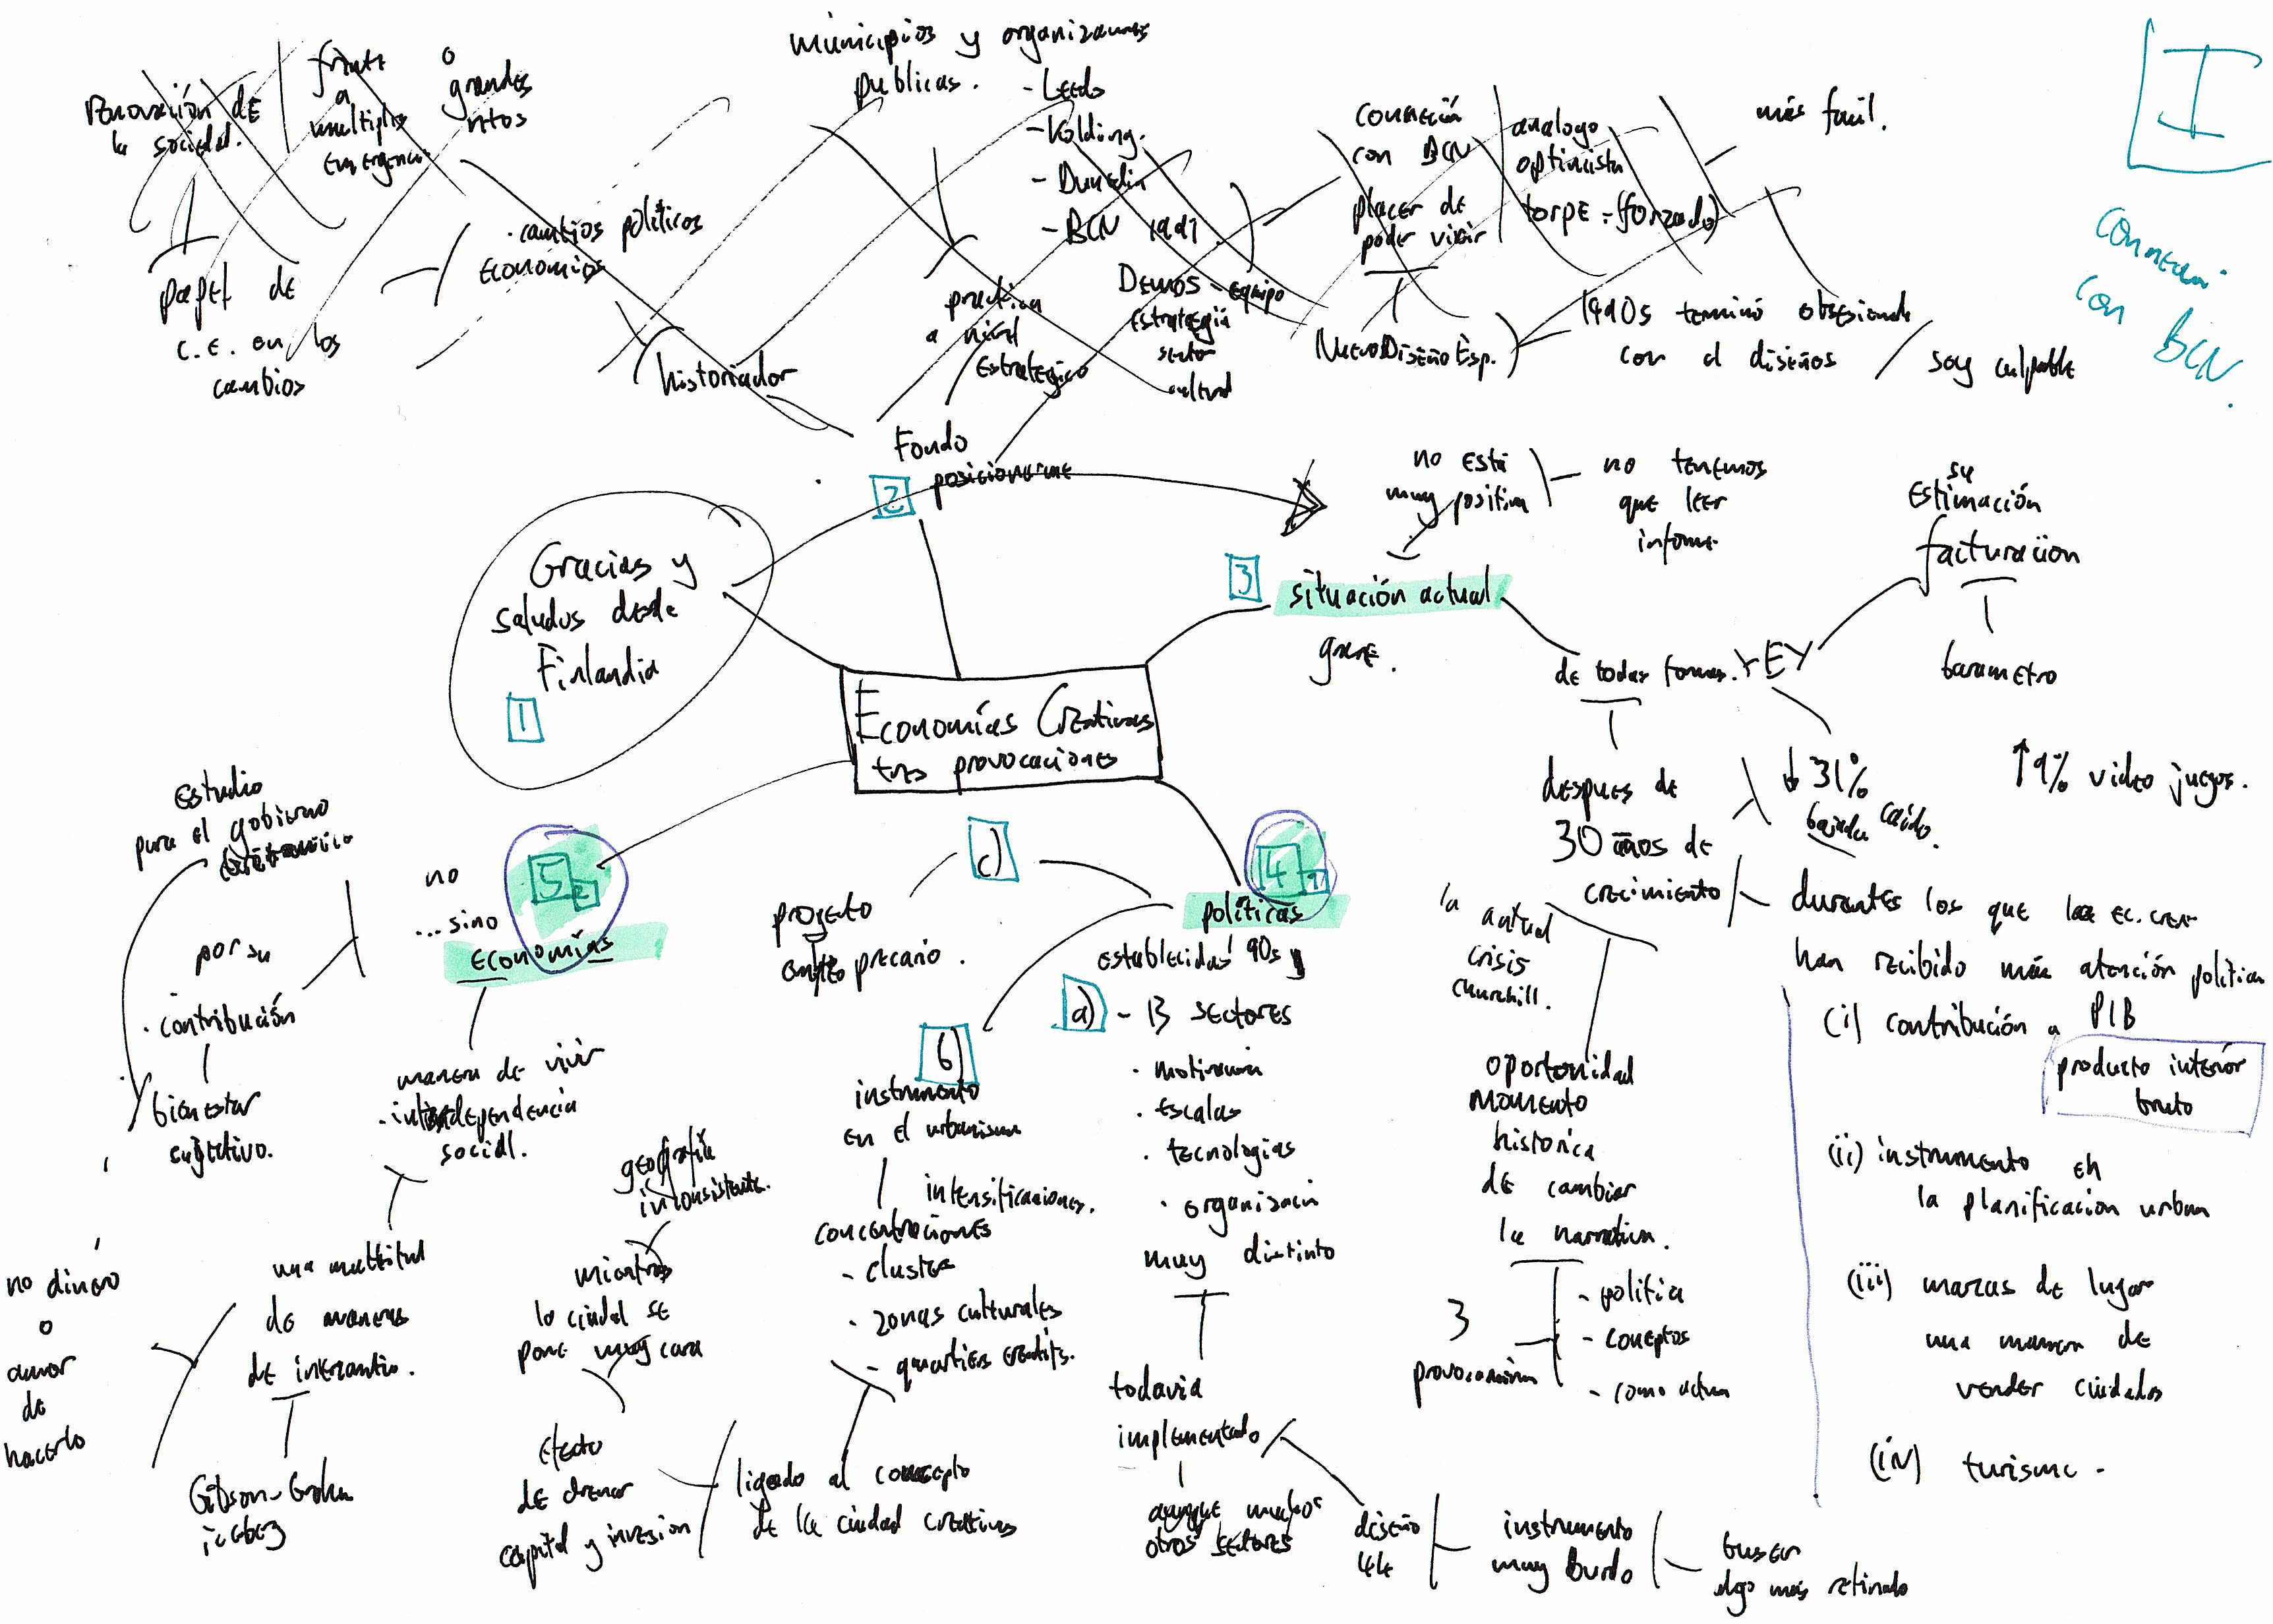 renovación de
la sociedad.
frente
a
multiples
emergenci
o
grandes
retos
papel de
C.E. en los
cambios
. cambios politicos
economios
historiador
municipios y organizaciones
publicas.
- Leeds
- Kolding.
- Dunedin
- BCN 1997
practica
a nivel
estrategico
Demos - equipo
estrategia
sector
cultural
conexión
con BCN
placer de
poder vivir
analogo
optimista
torpe = (forzado)
más facil.
Nuevo Diseño Esp.
1990s terminó obsesionado
con el diseños
soy culpable
I
con BCN.
Fondo
posicionarme
2
Gracias y
saludos desde
Finlandia
1
Economías Creativas
tres provocaciones
no está
muy positiva
no tenemos
que leer
informe.
3
situación actual
grave.
su
estimación
facturación
barametro
de todas formas.
EY
despues de
30 años de
crecimiento
↓ 31%
bajada
caido.
↑ 9% video juegos.
durantes los que las ec. crea
han recibido más atención politica
(i) contribución a PIB
producto interior
bruto
(ii) instrumento en
la planificacion urban
(iii) marcas de lugar
una manera de
vender ciudades
(iv) turismo.
la actual
crisis
Churchill.
oportunidad
momento
historica
de cambiar
la narrativa.
3
provocaciones
- politica
- conceptos
- como actua
4
1
políticas
establecidas 90s y
a) - 13 sectores
. motivación
. escalas
. tecnologias
. organización
muy distinto
todavia
implementado
aunque muchos
otros sectores
diseño
instrumento
muy burdo
buscar
algo más refinado
c)
proyecto
precario.
b)
instrumento
en el urbanismo
intensificaciones.
concentraciones
- cluster
. zonas culturales
- quartiers creatifs.
ligado al concepto
de la ciudad creativas
efecto
de drenar
capital y inversion
mientras
la ciudad se
pone muy cara
geografia
inconsistente.
5
2
no
...sino
economías
estudio
para el gobierno
británico
por su
. contribución
bienestar
subjetivo.
manera de vivir
. interdependencia
social.
una multitud
de maneras
de intercambio.
Gibson-Graham
iceberg
no dinero
o
amor
de
hacerlo